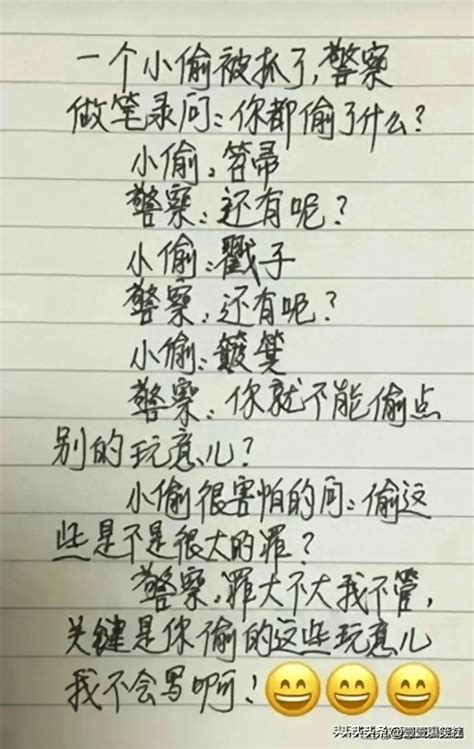 一个小偷被抓了,警察
做笔录问:你都偷了什么?
小偷:笤帚
警察:还有呢?
小偷:戳子
警察:还有呢?
小偷:簸箕
警察:你就不能偷点
别的玩意儿?
小偷很害怕的问:偷这
些是不是很大的罪?
警察:罪大不大我不管,
关键是你偷的这些玩意儿
我不会写啊!😄😄😄